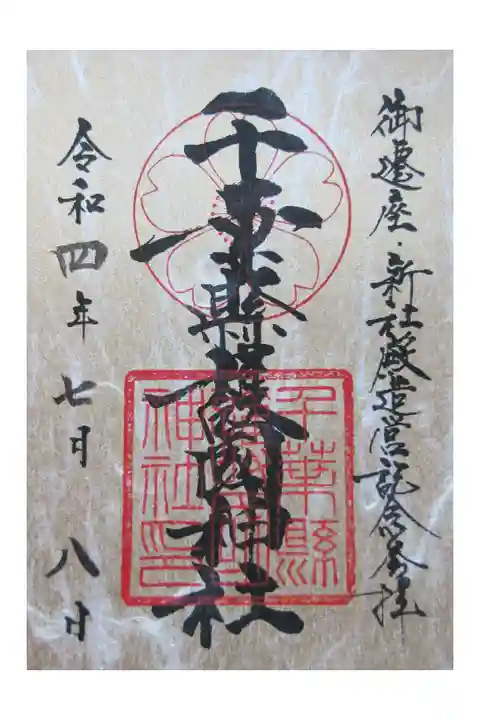 御遷座・新社殿造営記念参拝
千葉縣護國神社
千葉縣
護國
神社印
令和四年七月八日